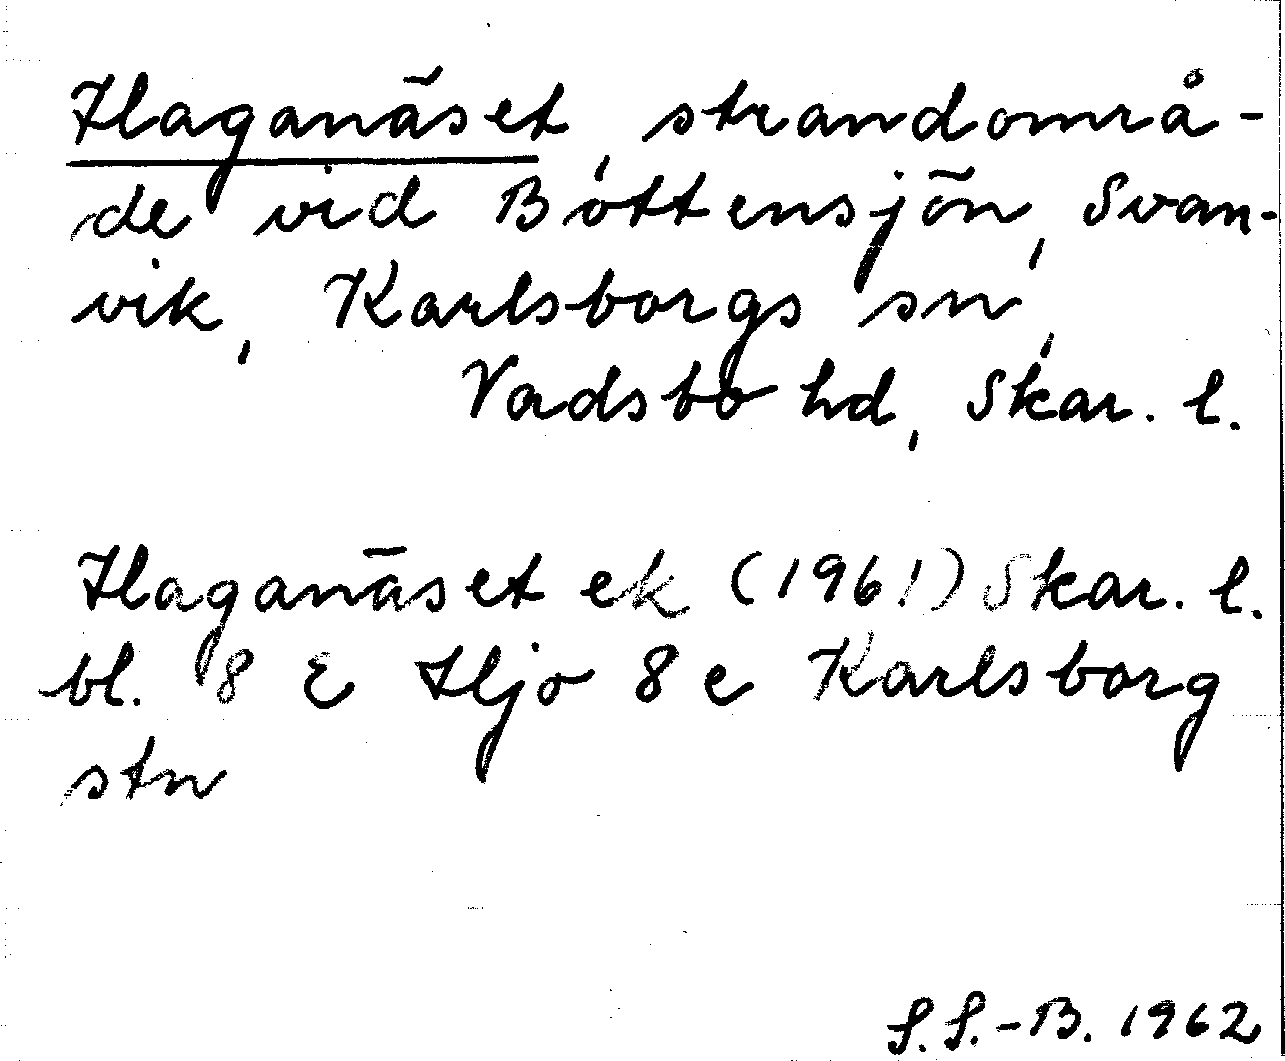 Haganäset, strandområ-
de vid Bottensjön, Svan-
vik, Karlsborgs sn,
Vadsbo hd, Skar. l.
Haganäset ek (1961) Skar. l.
bl. 8 E Hjo 8 e Karlsborg
stn
S.S.-B. 1962